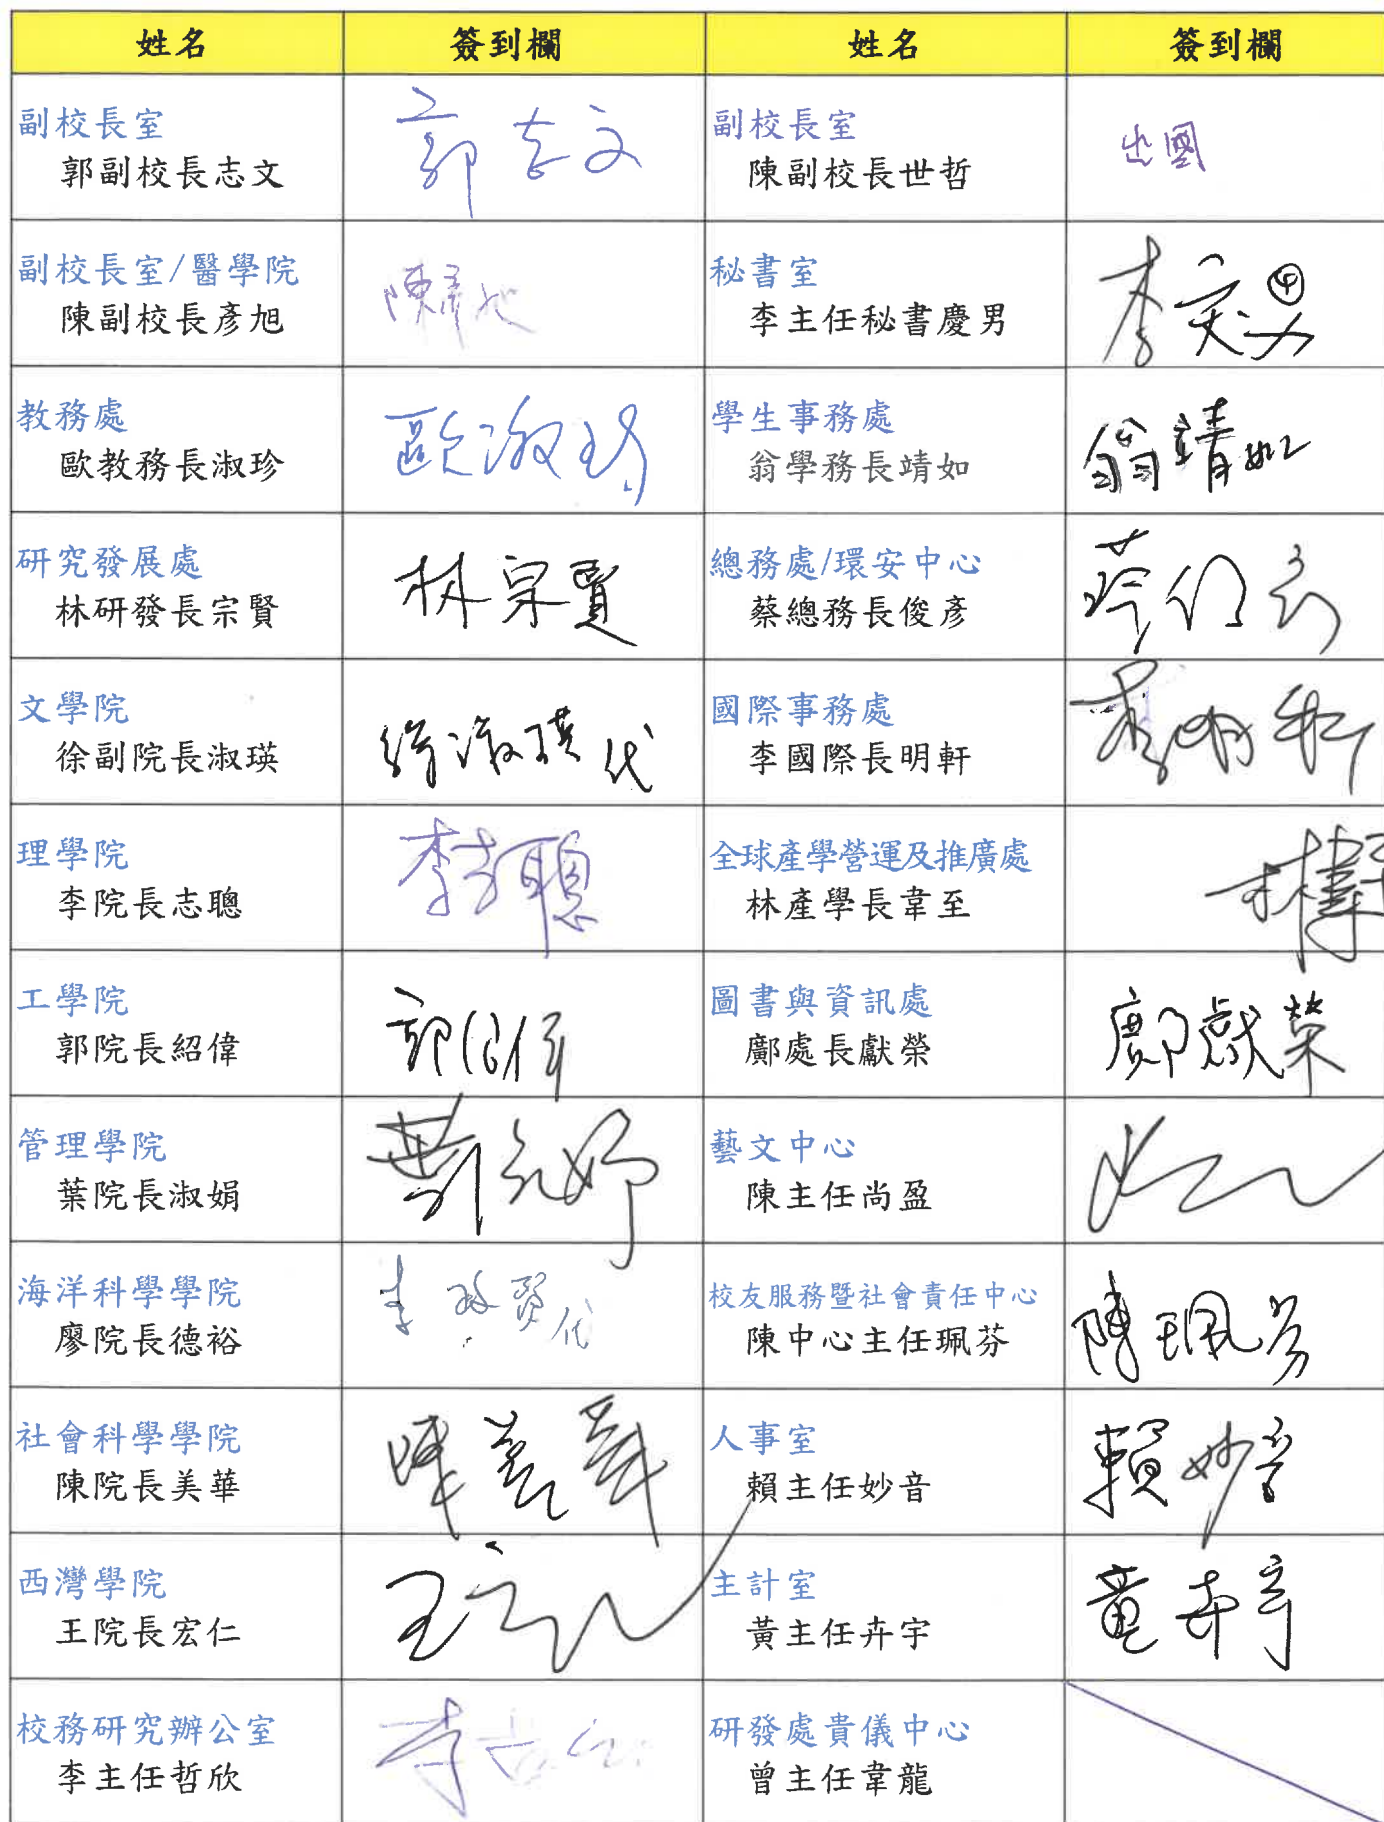 姓名 簽到欄 姓名 簽到欄
副校長室
郭副校長志文
郭志文
副校長室
陳副校長世哲
出國
副校長室/醫學院
陳副校長彥旭
陳彥旭
秘書室
李主任秘書慶男
李慶男
教務處
歐教務長淑珍
歐淑珍
學生事務處
翁學務長靖如
翁靖如
研究發展處
林研發長宗賢
林宗賢
總務處/環安中心
蔡總務長俊彥
蔡俊彥
文學院
徐副院長淑瑛
徐淑瑛代
國際事務處
李國際長明軒
李明軒
理學院
李院長志聰
李志聰
全球產學營運及推廣處
林產學長韋至
工學院
郭院長紹偉
郭紹偉
圖書與資訊處
鄺處長獻榮
鄺獻榮
管理學院
葉院長淑娟
藝文中心
陳主任尚盈
海洋科學學院
廖院長德裕
校友服務暨社會責任中心
陳中心主任珮芬
陳珮芬
社會科學學院
陳院長美華
陳美華
人事室
賴主任妙音
賴妙音
西灣學院
王院長宏仁
主計室
黃主任卉宇
黃卉宇
校務研究辦公室
李主任哲欣
研發處貴儀中心
曾主任韋龍